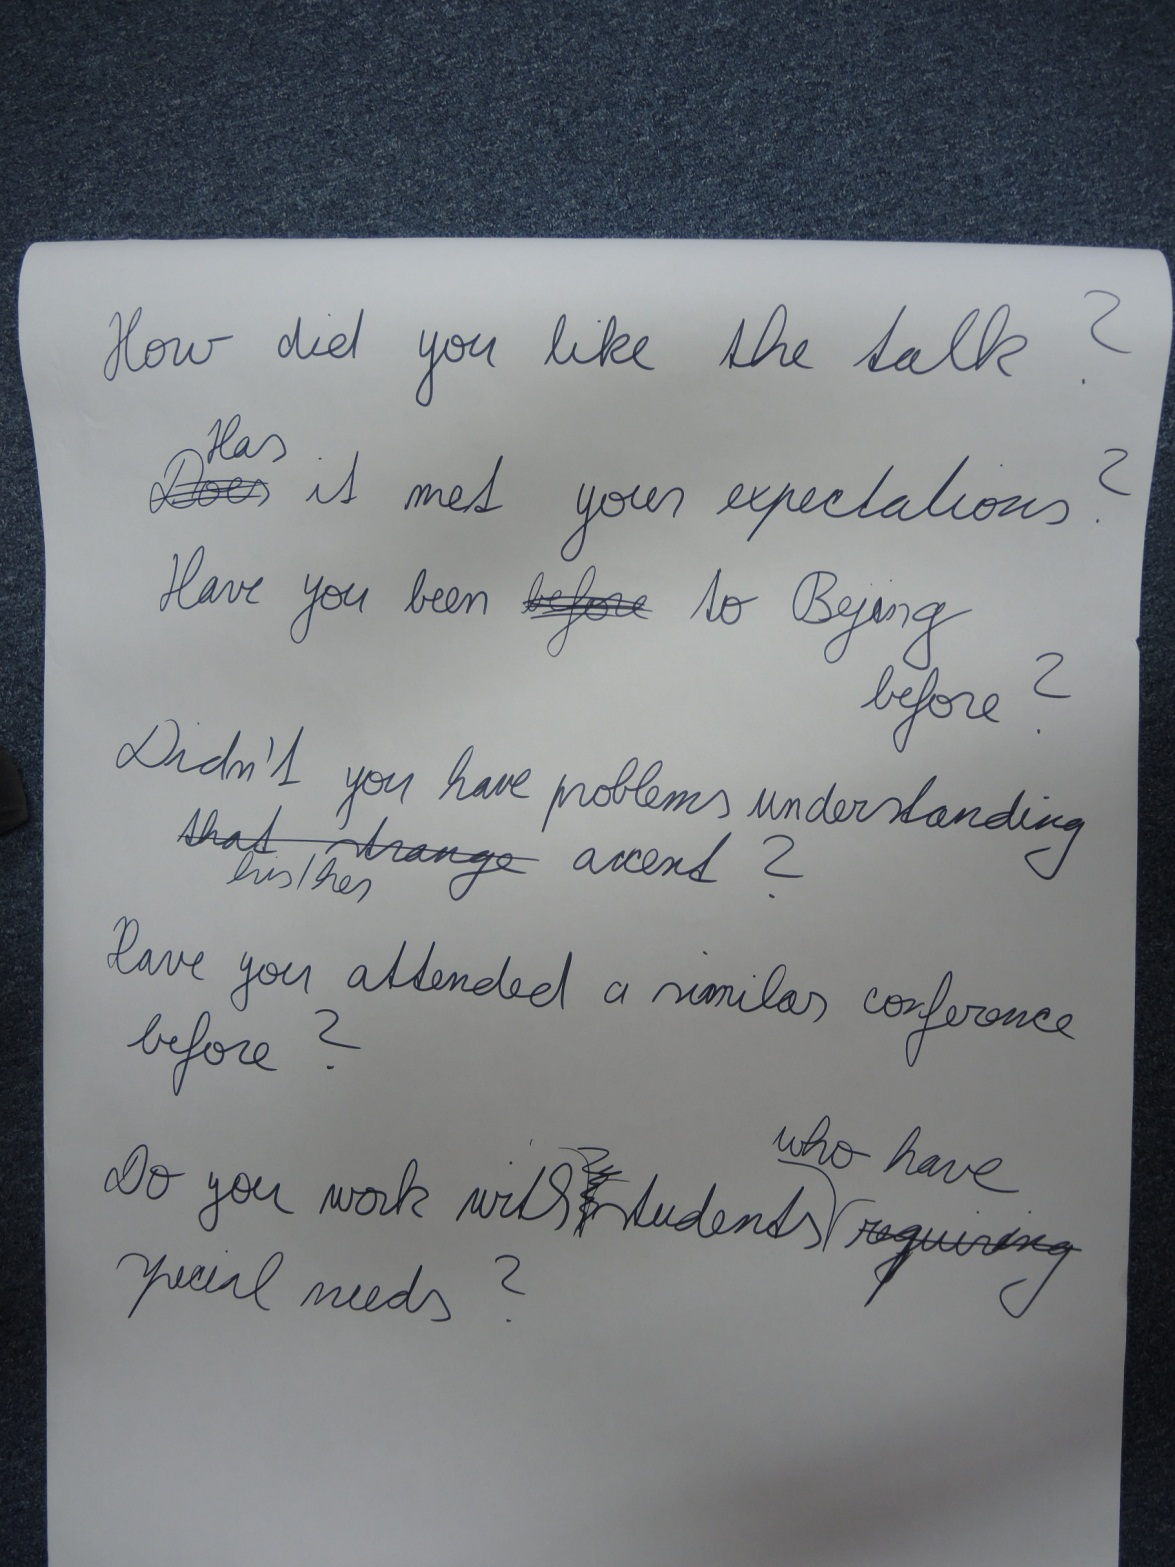 How did you like the talk?
Has
Does it met your expectations?
Have you been before to Bejing
before?
Didn't you have problems understanding
that strange accent?
his/her
Have you attended a similar conference
before?
who have
Do you work with students requiring
special needs?